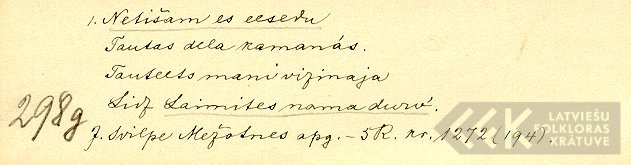 1. Netišam es eesedu
Tautas dēla kamanās.
Tauteets mani vizinaja
Lidz Laimites nama durv.
J. Svilpe Mežotnes apg. – 5R. nr. 1272 (194).
298g
LATVIEŠU
FOLKLORAS
KRĀTUVE